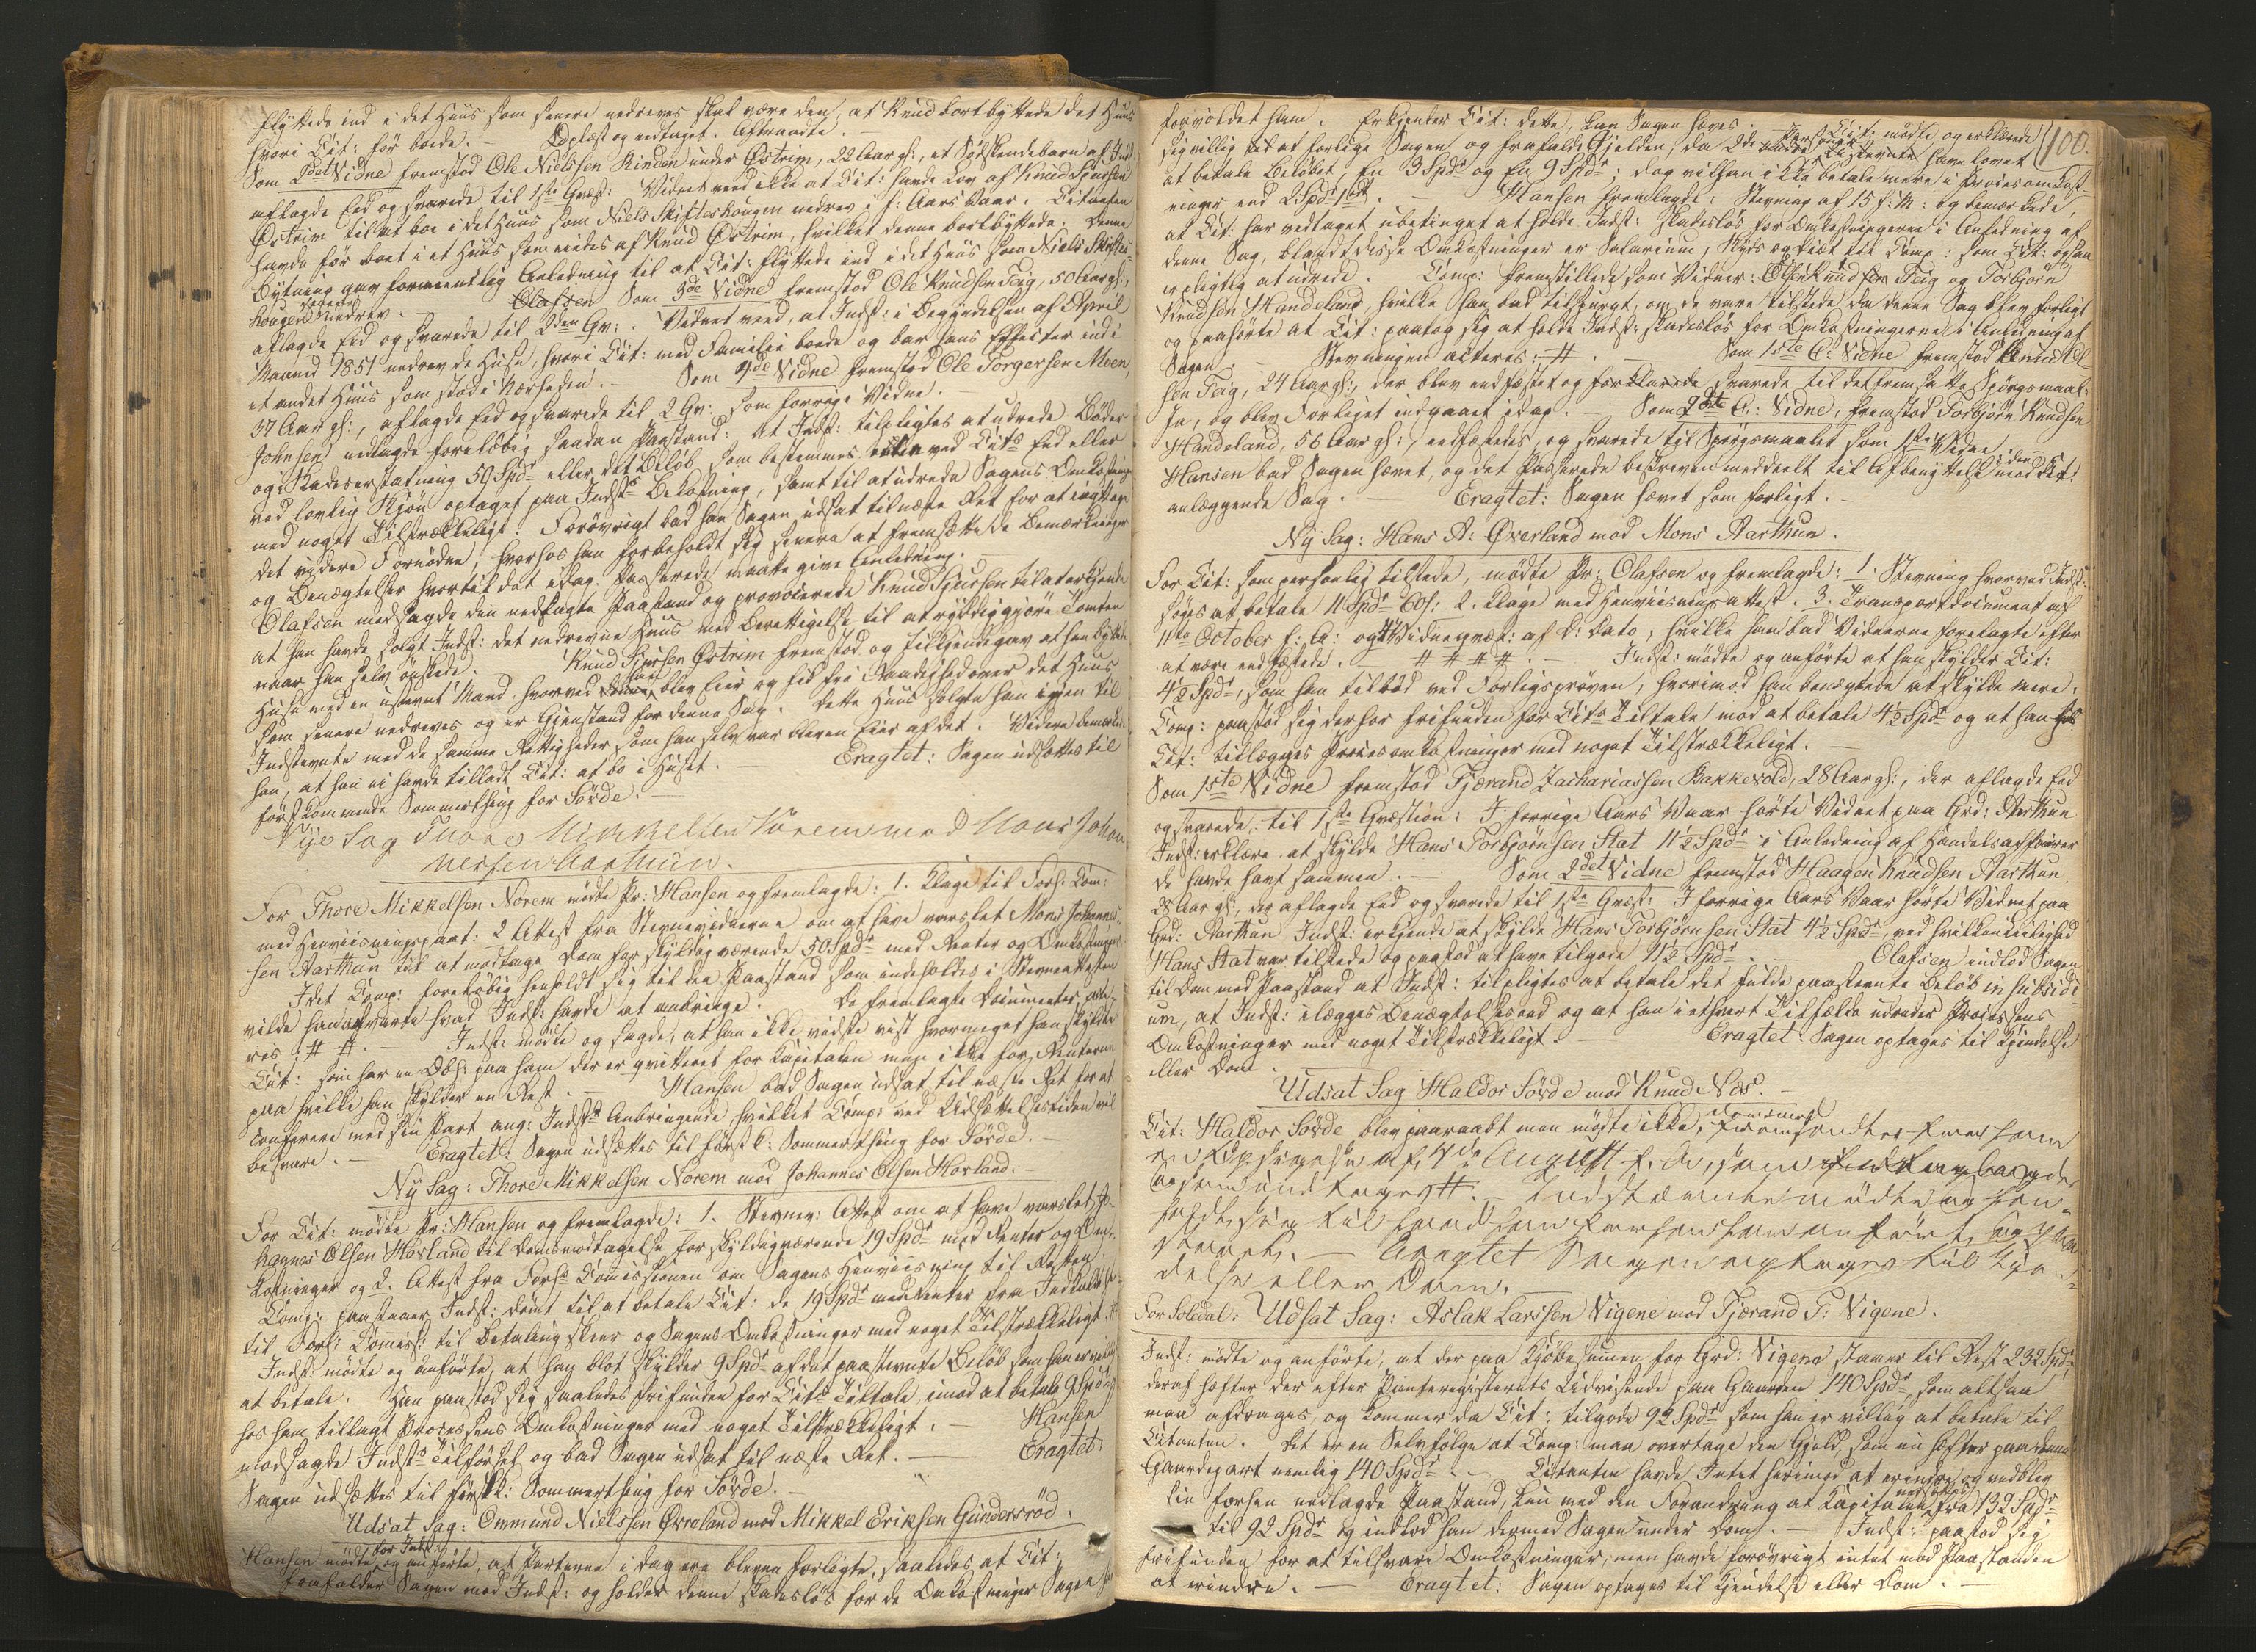 flyttede ind i det Huus som senere nedreves skal være den, at Knud bortbyttede det Huus
hvori Cit: før boede. — Oplæst og vedtaget. Aftraadte. —
Som 2det Vidne fremstod Ole Nielssen Rinden under Østrim, 22 Aar gl:, et Sødskendebarn af Ind-
aflagde Eed og svarede til 1ste Qvæst: Vidnet veed ikke at Cit: havde Lov af Knud Sjursen
Østrim til at boe i det Huus som Niels Skifteshougen nedrev i f: Aars Vaar. Citanten
havde før boet i et Huus som eiedes af Knud Østrim, hvilket denne bortbyttede. Denne
Bytning gav formeentlig Anledning til at Cit: flyttede ind i det Huus som Niels Skiftes-
hougen senere nedrev. — Olafsen Som 3de Vidne fremstod Ole Knudsen Teig, 50 Aar gl:,
aflagde Eed og svarede til 2den Qv: . Vidnet veed, at Indst: i Begyndelsen af April
Maaned 1851 nedrev de Huse, hvori Cit: med Familie boede og bar hans Effecter ind i
et andet Huus som stod i Nærheden. — Som 4de Vidne fremstod Ole Torgersen Moen,
37 Aar gl:, aflagde Eed og svarede til 2 Qv: som forrige Vidne.
Johnsen nedlagde foreløbig saadan Paastand: At Indst: tilpligtes at udrede Bøder
og i Skadeserstatning 50 Spd eller det Beløb som bestemmes ved Cits Eed eller
ved lovlig Skjøn optaget paa Indsts Bekostning, samt til at udrede Sagens Omkostninger
med noget Tilstrækkeligt. Forøvrigt bad han Sagen udsat til næste Ret for at iagttage
det videre Fornødne, hvorhos han forbeholdt sig senere at fremsætte de Bemærkninger
og Benægtelser hvortil det idag Passerede maatte give Anledning. —
Olafsen modsagde den nedlagte Paastand og provocerede Knud Sjursen til at erkjende
at han havde solgt Indst: det nedrevne Huus med Berettigelse til at ryddiggjøre Tomten
naar han selv ønskede. Knud Sjursen Østrim fremstod og tilkjendegav at han byttede
Huse med en ustevnt Mand hvorved han blev Eier og fik fri Raadighed over det Huus
som senere nedreves og er Gjenstand for denne Sag. Dette Huus solgte han igjen til
Indstevnte med de samme Rettigheder som han selv var bleven Eier af det. Videre bemærkede
han, at han ei havde tilladt Cit: at bo i Huset. — Eragtet: Sagen udsættes til
førstkommende Sommerthing for Sørde. —
Nye Sag Thore Mikkelsen Norem mod Mons Johan-
nessen Aarthun.
For Thore Mikkelsen Norem mødte Pr: Hansen og fremlagde: 1. Klage til Forl: Com:
med Henviisningspaat: 2 Attest fra Stevnevidnerne om at have varslet Mons Johannes-
sen Aarthun til at modtage Dom for skyldigværende 50 Spd med Renter og Omkostninger
Idet Comp: foreløbig henholdt sig til den Paastand som indeholdes i Stevneattesten
vilde han afvarte hvad Indst: havde at anbringe. De fremlagte Documenter acte-
res: # #. — Indst: mødte og sagde, at han ikke vidste vist hvormeget han skylder
Cit: som har en Obl: paa ham der er qvitteret for Kapitalen men ikke for Renterne
paa hvilke han skylder en Rest. — Hansen bad Sagen udsat til næste Ret for at
conferere med sin Part ang: Indsts Anbringende hvilket Comp: ved Udsættelsestiden vil
besvare. — Eragtet: Sagen udsættes til først k: Sommerthing for Sørde. —
Ny Sag: Thore Mikkelsen Norem mod Johannes Olsen Hovland. —
For Cit: mødte Pr: Hansen og fremlagde: 1. Stevnev: Attest om at have varslet Jo-
hannes Olsen Hovland til Domsmodtagelse for skyldigværende 19 Spd med Renter og Om-
kostninger og 2. Attest fra Forls Comissionen om Sagens Henviisning til Retten.
Comp: paastaaer Indst: dømt til at betale Cit: de 19 Spd med Renter fra Indkaldelsen
til Forl: Comiss: til Betaling skeer og Sagens Omkostninger med noget Tilstrækkeligt ##
Indst: mødte og anførte, at han blot skylder 9 Spd af det paastevnte Beløb som han er villig
at betale. Han paastod sig saaledes frifunden for Cits Tiltale imod at betale 9 Spd og
hos ham tillagt Processens Omkostninger med noget Tilstrækkeligt. — Hansen
modsagde Indsts Tilførsel og bad Sagen udsat til næste Ret. — Eragtet:
Sagen udsættes til først k: Sommerthing for Sørde. —
Udsat Sag: Ommund Nielssen Øvreland mod Mikkel Eriksen Gundersrød.
Hansen mødte for Indst: og anførte, at Parterne i dag ere blevne forligte, saaledes at Cit:
frafalder Sagen mod Indst: og holder denne skadesløs for de Omkostninger Sagen har
100.
forvoldet ham. Erkjender Cit: dette, kan Sagen hæves. — Cit: mødte og erklærede
sig villig til at forlige Sagen og frafalde Gjelden, da 2de have lovet
at betale Beløbet, En 3 Spd og En 9 Spd; dog vil han ikke betale mere i Procesomkost-
ninger end 2 Spd 1 ort. — Hansen fremlagde: Stevning af 15 f: M: og bemærkede,
at Cit: har vedtaget ubetinget at holde Indst: skadesløs for Omkostningerne i Anledning af
denne Sag, blandt disse Omkostninger er Salarium, Skyds og Diæt til Comp: som Cit: ogsaa
er pligtig at udrede. — Comp: fremstillede som Vidner: Ole Knudsen Teig og Torbjørn
Knudsen Handeland, hvilke han bad tilspurgt, om de vare tilstede da denne Sag blev forligt
og paahørte at Cit: paatog sig at holde Indst: skadesløs for Omkostningerne i Anledning af
Sagen. — Stevningen acteres: #. — Som 1ste C: Vidne fremstod Knud Ol-
sen Teig, 24 Aar gl:, der blev eedfæstet og svarede til det fremsatte Spørgsmaal:
Ja, og blev Forliget indgaaet idag. — Som 2det C: Vidne, fremstod Torbjørn Knudsen
Handeland, 56 Aar gl:, eedfæstedes, og svarede til Spørgsmaalet som 1ste Vidne.
Hansen bad Sagen hævet, og det Passerede beskreven meddeelt til Afbenyttelse i den mod Cit:
anlæggende Sag. — Eragtet: Sagen hævet som forligt. —
Ny Sag: Hans A: Øverland mod Mons Aarthun.
For Cit: som personlig tilstede, mødte Pr: Olafsen og fremlagde: 1. Stevning hvorved Indst:
søges at betale 11 Spd 60 s: 2. Klage med Henviisningsattest. 3. Transportdocument af
11te October f: A: og 4 Vidneqvæst: af D: Dato, hvilke han bad Vidnerne forelagte efter
at være eedfæstede. — # # # #. — Indst: mødte og anførte at han skylder Cit:
4½ Spd, som han tilbød ved Forligsprøven, hvorimod han benægtede at skylde mere.
Comp: paastod sig derfor frifunden for Cits Tiltale mod at betale 4½ Spd og at han hos
Cit: tillægges Procesomkostninger med noget Tilstrækkeligt. —
Som 1ste Vidne fremstod Tjerand Zachariassen Bakkevold, 28 Aar gl:, der aflagde Eed
og svarede, til 1ste Qvæstion: I forrige Aars Vaar hørte Vidnet paa Grd: Aarthun
Indst: erklære at skylde Hans Torbjørnsen Stat 11½ Spd i Anledning af Handelsaffairer
de havde havt sammen. — Som 2det Vidne fremstod Haagen Knudsen Aarthun
28 Aar gl:, der aflagde Eed og svarede til 1ste Qvæst: I forrige Aars Vaar hørte Vidnet paa
Grd: Aarthun Indst: erkjende at skylde Hans Torbjørnsen Stat 4½ Spd, ved hvilken Leilighed
Hans Stat var tilstede og paastod at have tilgode 11½ Spd. — Olafsen indlod Sagen
til Dom med Paastand at Indst: tilpligtes at betale det fulde paastevnte Beløb in subsidi-
um, at Indst: ilægges Benægtelseseed og at han i ethvert Tilfælde udreder Processens
Omkostninger med noget Tilstrækkeligt. — Eragtet: Sagen optages til Kjendelse
eller Dom.
Udsat Sag Haldor Sørde mod Knud Næs. —
Cit: Haldor Sørde blev paaraabt men mødte ikke, derimod fremsendt er fra ham
en Opsigelse af 4de August f. A., som
# . — Indstævnte mødte og hen-
holdt sig til hvad han forhen har anført, og
. — Eragtet Sagen optages til Kjen-
delse eller Dom. —
For Soledal: Udsat Sag: Aslak Larssen Vigene mod Tjerand T: Vigene.
Indst: mødte og anførte, at der paa Kjøbesummen for Grd: Vigene staaer til Rest 232 Spd,
deraf hefter der efter Panteregisterets Udvisende paa Gaarden 140 Spd, som altsaa
maa afdrages, og kommer da Cit: tilgode 92 Spd som han er villig at betale til
Citanten. Det er en Selvfølge at Comp: maa overtage den Gjeld, som nu hæfter paa denne
Gaardepart nemlig 140 Spd. — Citanten havde Intet herimod at erindre og vedblev
sin forhen nedlagde Paastand, kun med den Forandring at Kapitalen nedsættes fra 132 Spd
til 92 Spd og indlod han dermed Sagen under Dom. — Indst: paastod sig
frifunden for at tilsvare Omkostninger, men havde forøvrigt intet mod Paastanden
at erindre. — Eragtet: Sagen optages til Kjendelse eller Dom. —